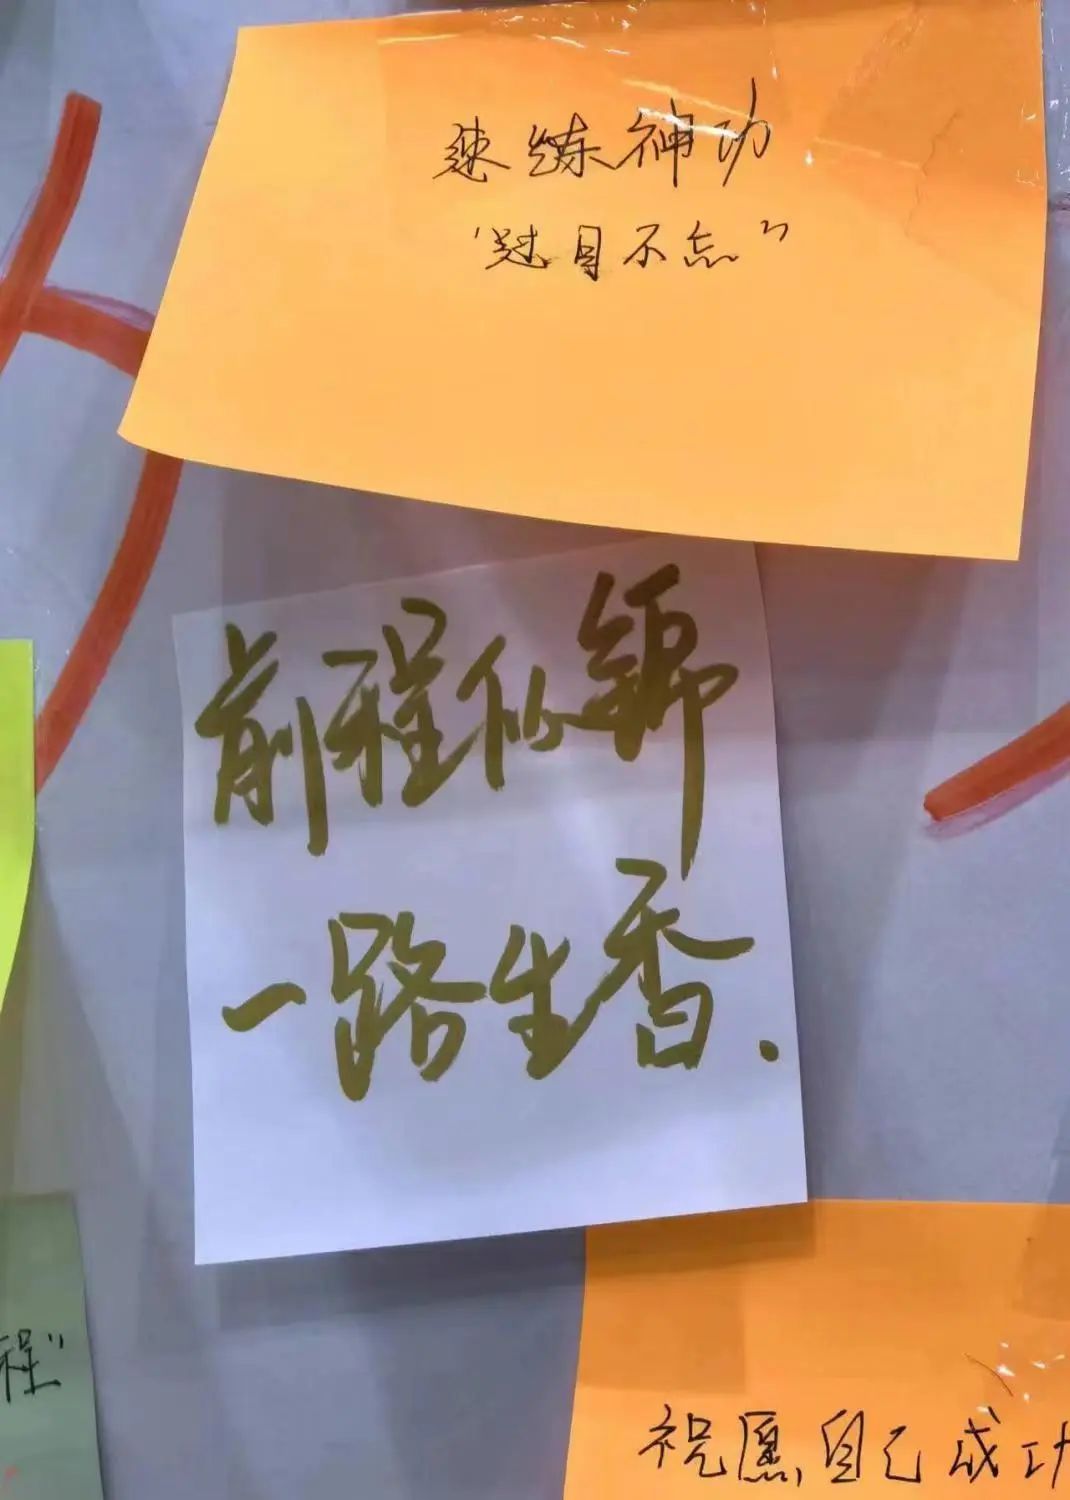 速练神功
“过目不忘”
前程似锦
一路生香.
程”
祝愿自己成功